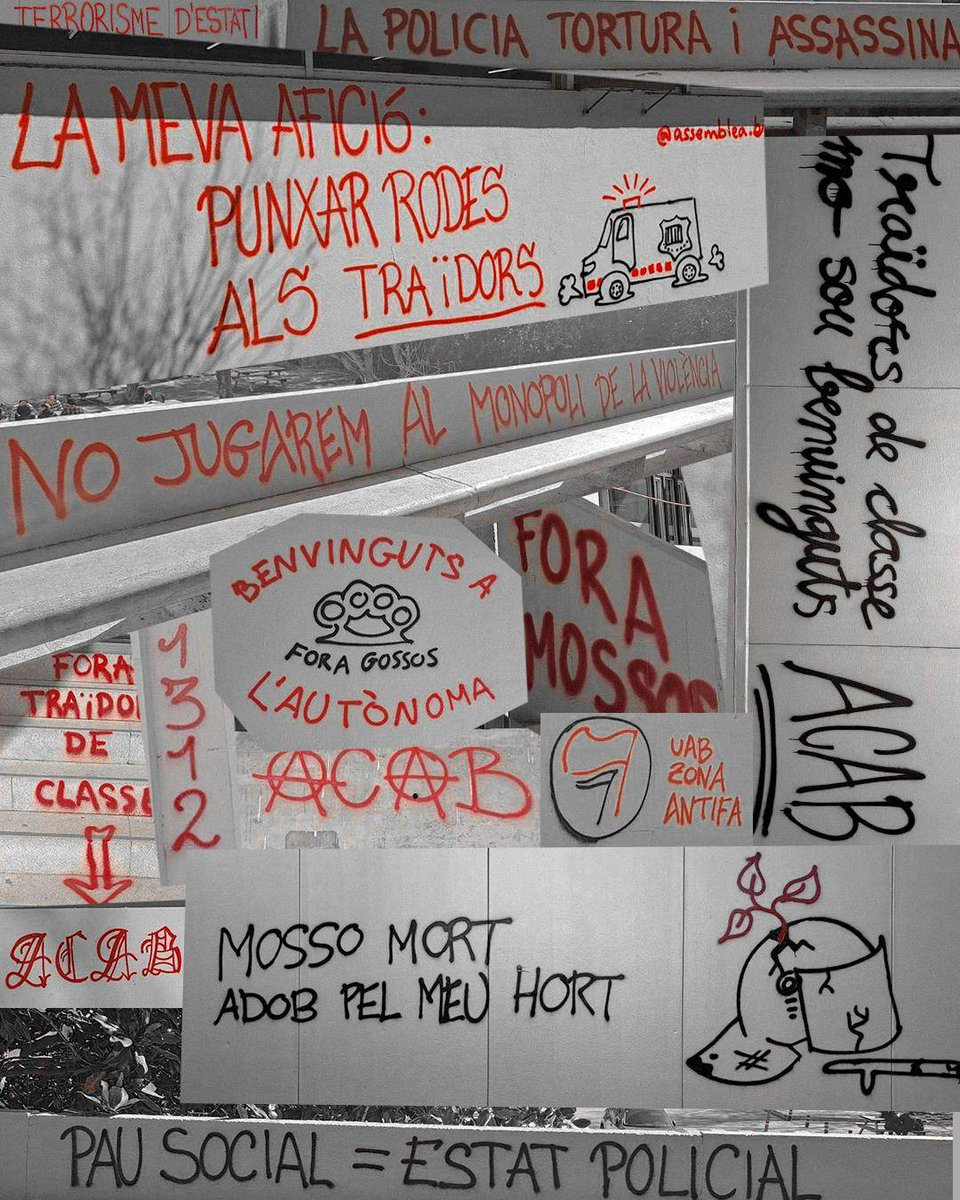 TERRORISME D'ESTAT!
LA POLICIA TORTURA i ASSASSINA
LA MEVA AFICIÓ:
PUNXAR RODES
ALS TRAÏDORS
@assemblea.b
Traïdores de classe
no sou benvinguts
ACAB
NO JUGAREM AL MONOPOLI DE LA VIOLÈNCIA
BENVINGUTS A
FORA GOSSOS
L'AUTÒNOMA
FORA
MOSSOS
FORA
TRAÏDO
DE
CLASSE
ACAB
1
3
1
2
ACAB
UAB
ZONA
ANTIFA
MOSSO MORT
ADOB PEL MEU HORT
PAU SOCIAL = ESTAT POLICIAL